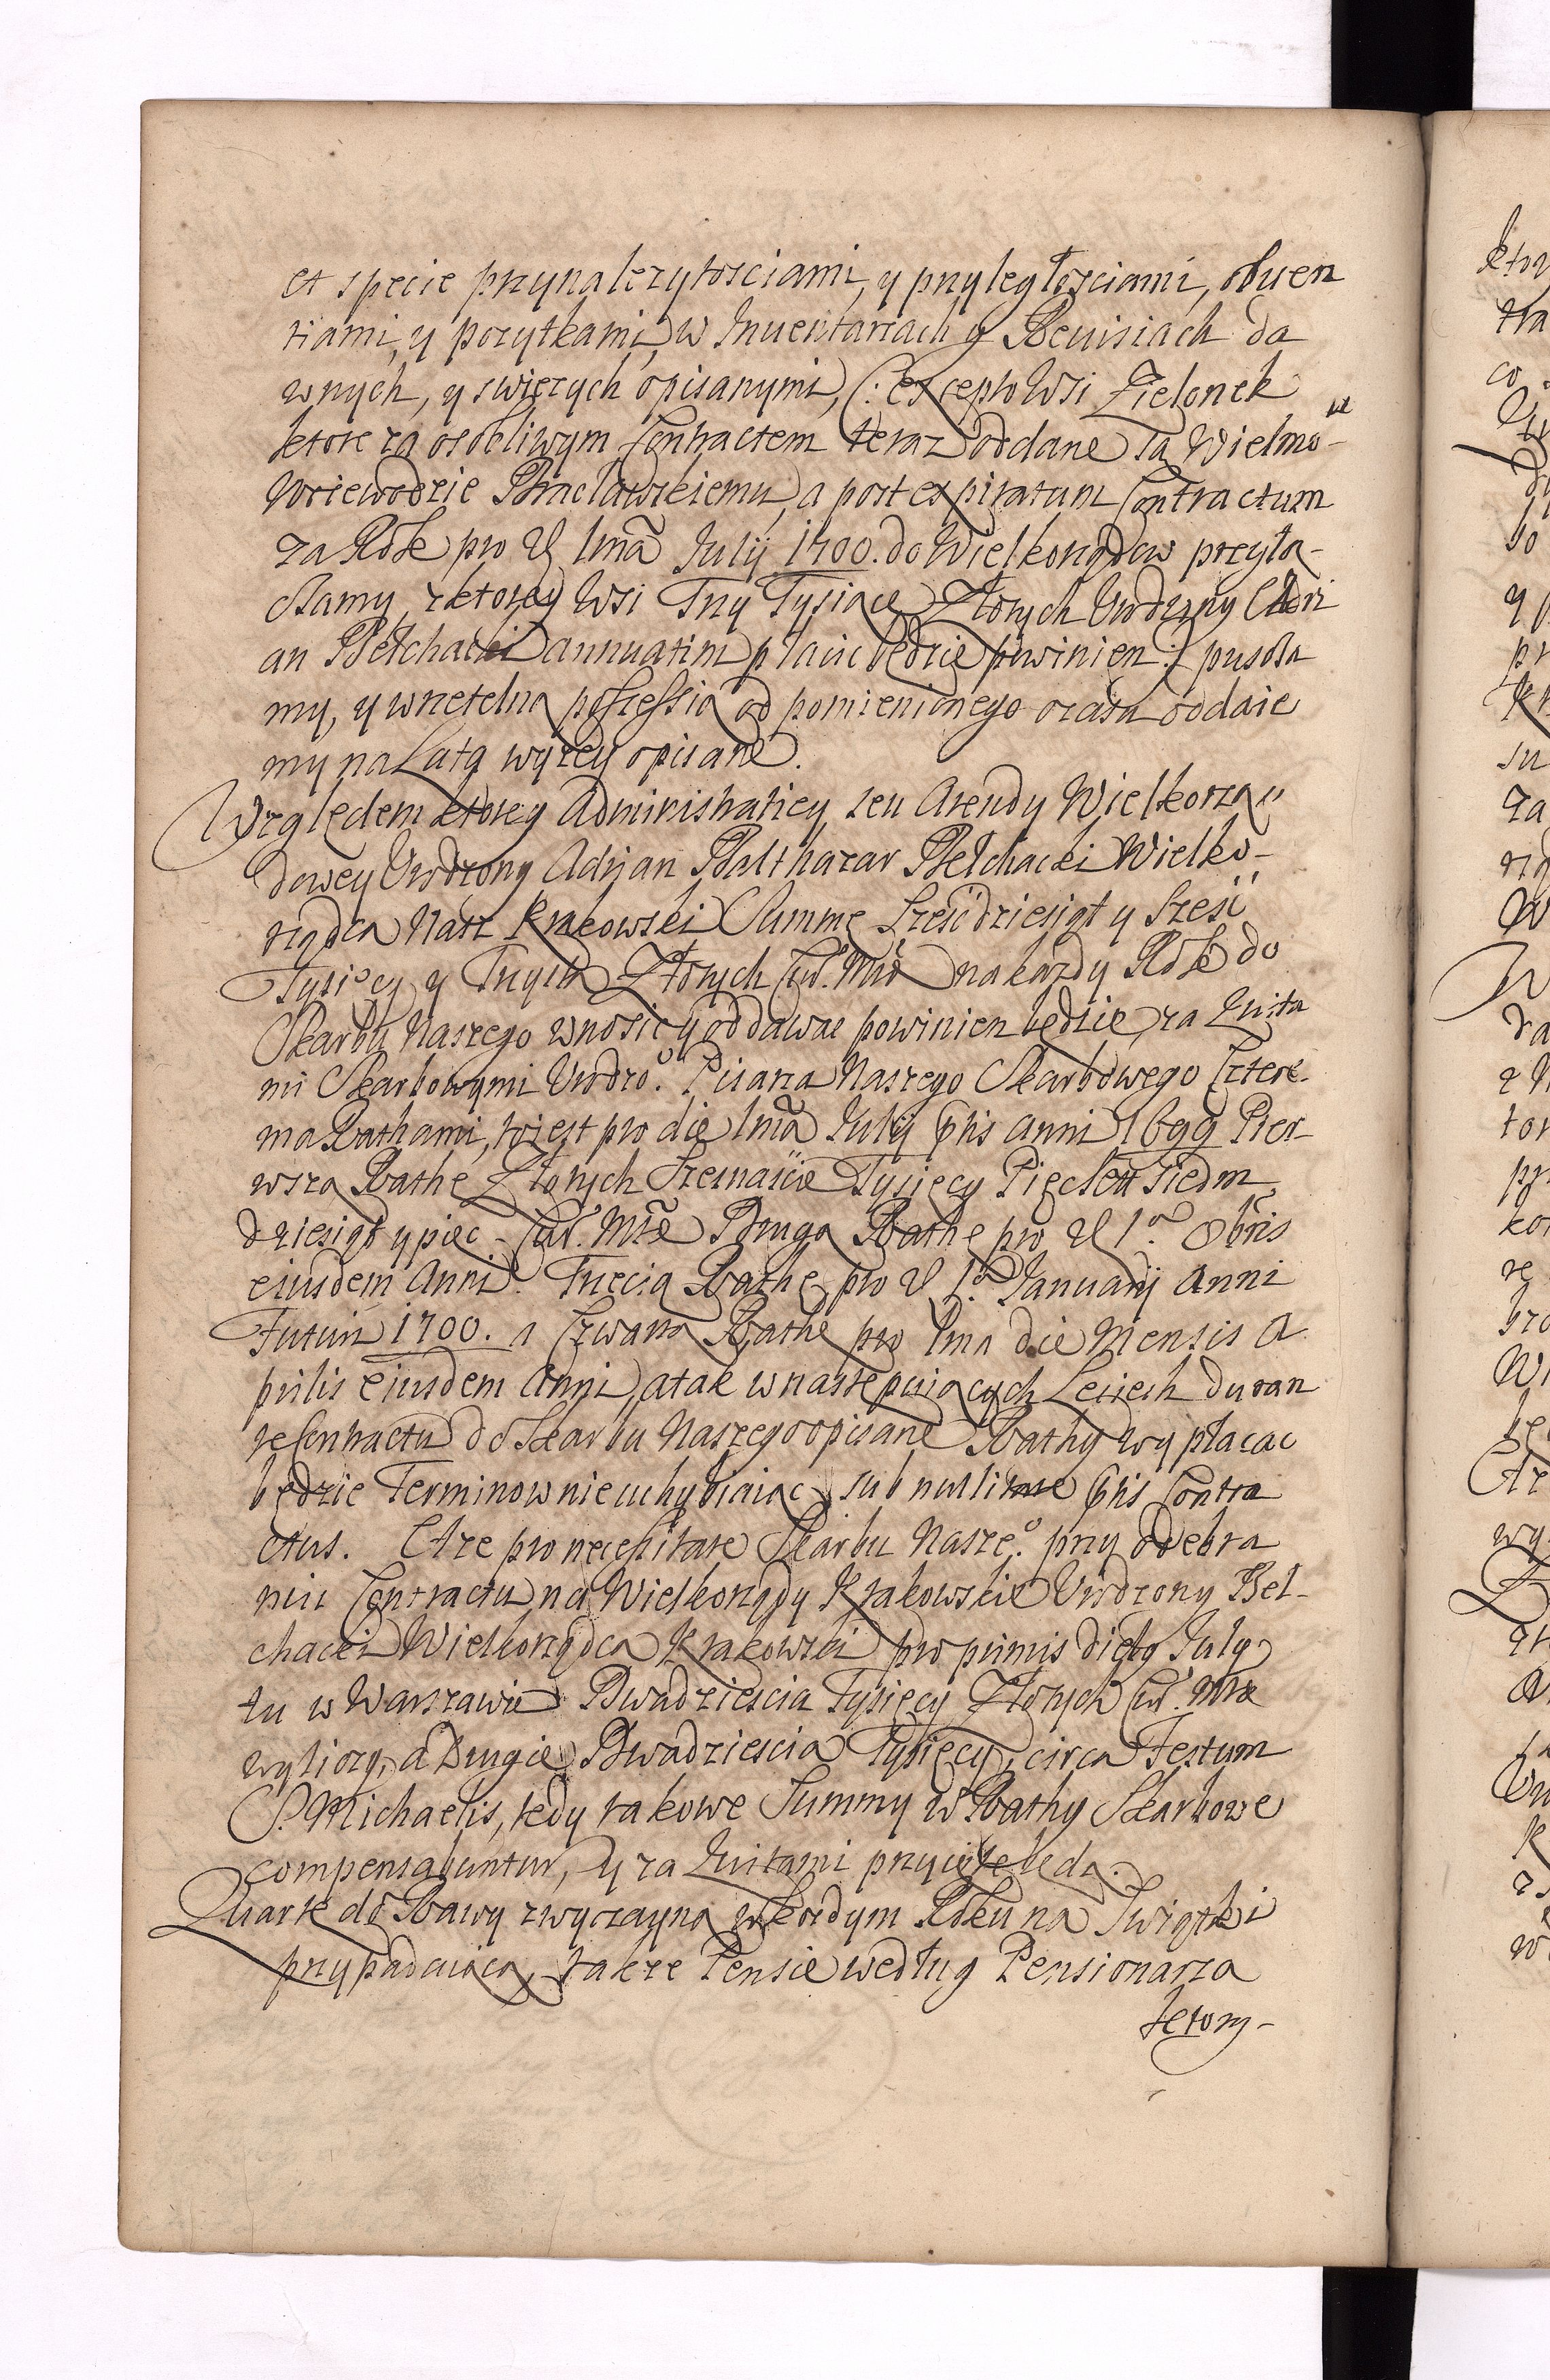 et specie przynalezytosciami, y przyległosciami, obuen
tiami, y pozytkami, w Inuentarzach y Reuisiach da
wnych, y swiezych opisanymi, (: excepto Wsi Zielonek
ktore za osobliwym Contractem teraz oddane są Wielmo-
Woiewodzie Bracławskiemu, a post expiratum Contractum
za Rok pro d 1mã Julij 1700. do Wielkorządow przyłą-
czamy, z ktorey Wsi Trzy Tysiące Złotych Urodzony Adri
an Bełchacki annuatim płacic będzie powinien :) puscza
my, y wrzetelną possessią od pomienionego czasu oddaie
my na Lata wyżey opisane.
Względem ktorey Administratiey seu Arendy Wielkorzą"
dowey Urodzony Adrjan Balthazar Bełchacki Wielko-
rządca Nasz Krakowski Summę Szescdziesiąt y Szesc
Tysięcy y Trzysta Złotych Cur. Mtæ na każdy Rok do
Skarbu Naszego wnosic y oddawac powinien będzie, za Kwita
mi Skarbowymi Urodzo. Pisarza Naszego Skarbowego Cztere-
ma Rathami, to jest pro die 1mã Julij pñs anni 1699 Pier-
wszą Rathę Złotych Szesnascie Tysięcy Pięcset siedm
dziesiąt y pięc - Cur. Mtæ Drugą Rathę pro d 1ª 8bris
eiusdem Anni. Trzecią Rathę pro d 1ª Januarij Anni
Futuri 1700. a Czwartą Rathę pro 1ma die Mensis A
prilis eiusdem Anni, a tak w nastepuiących Leciech duran
te Contractu do Skarbu Naszego opisane Rathy wypłacac
będzie Terminow nie uchybiaiąc, sub nullitate pñtis Contra
ctus. A że pro necessitate Skarbu Naszeº. przy odebra
niu Contractu na Wielkorządy Krakowskie Urodzony Beł-
chacki Wielkorządca Krakowski pro primis diebg July
tu w Warszawie Dwadziescia Tysięcy Złotych Cur. Mtæ
wyliczy, a Drugie Dwadziescia Tysięcy, circa Festum
S. Michaelis, tedy takowe Summy w Rathy Skarbowe
compensabuntur, y za Kwitami przyięte będą.
Kwartę do Rawy zwyczayną w kożdym Roku na Swiątki
przypadaiącą, także Pensie według Pensionarza
ktory-